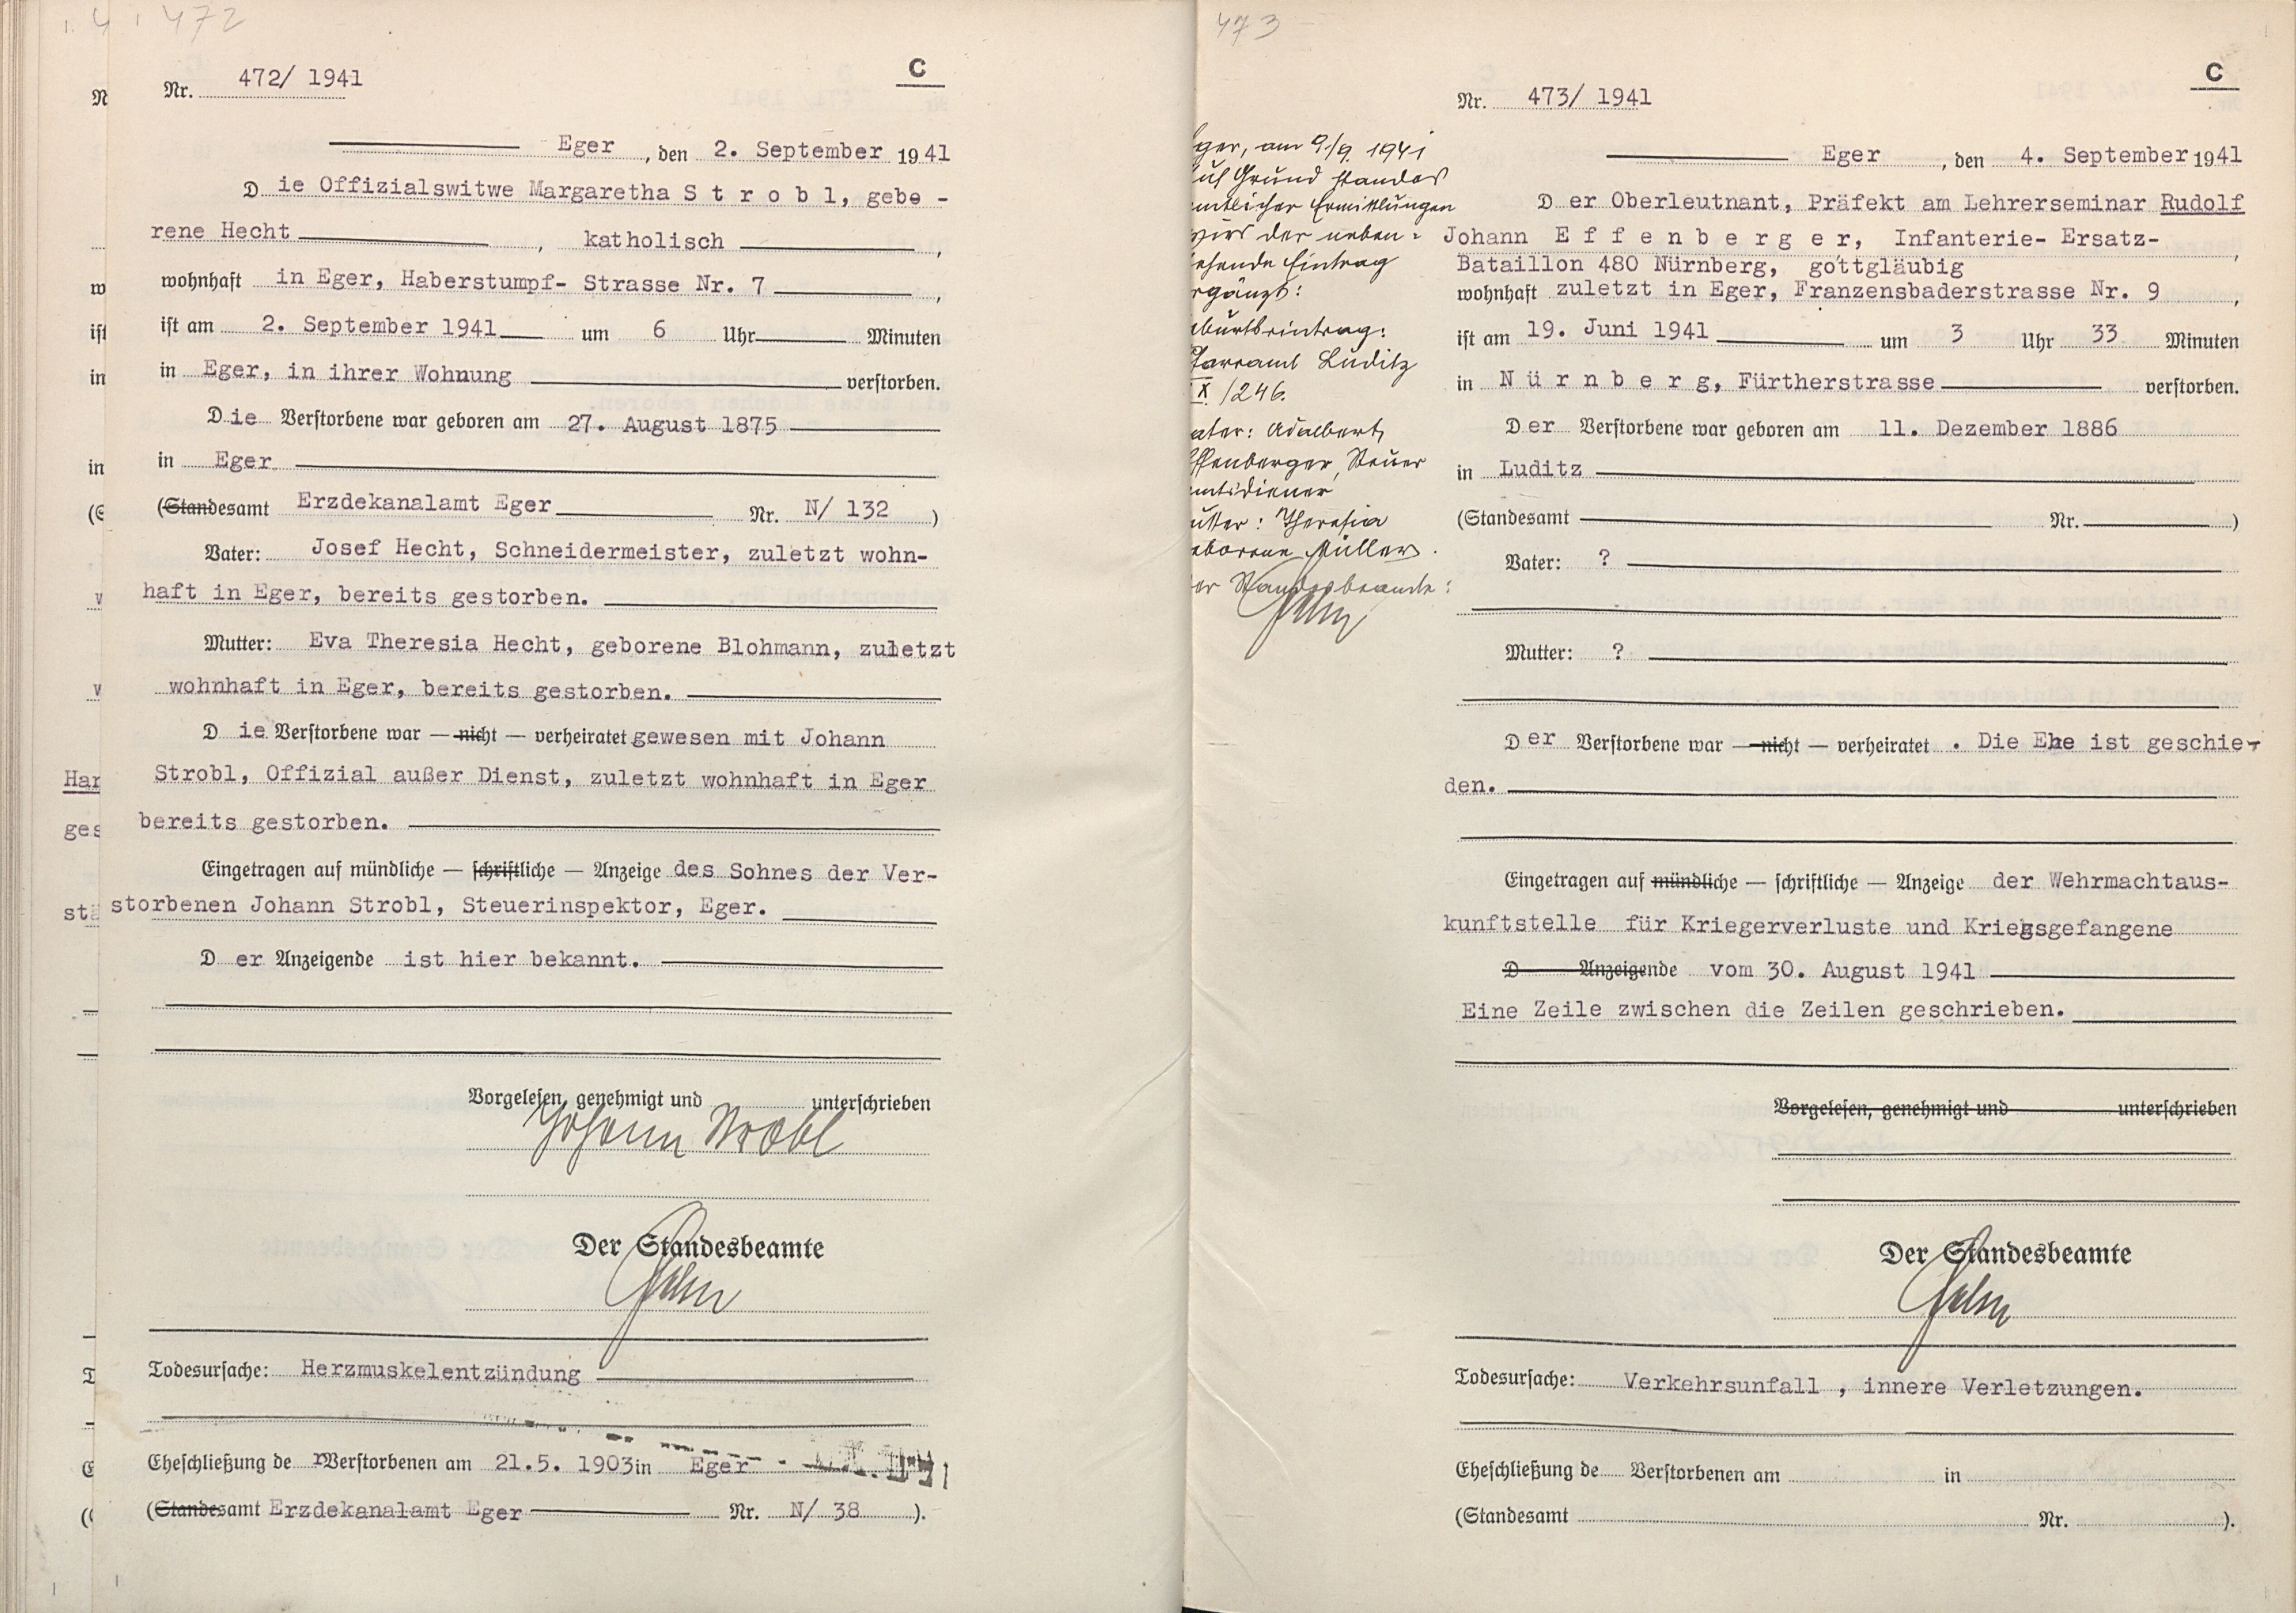 472
C
Nr. 472/ 1941
Eger, den 2. September 1941
Die Offizialswitwe Margaretha S t r o b l, gebo -
rene Hecht, katholisch,
wohnhaft in Eger, Haberstumpf- Strasse Nr. 7,
ist am 2. September 1941 um 6 Uhr Minuten
in Eger, in ihrer Wohnung verstorben.
Die Verstorbene war geboren am 27. August 1875
in Eger
(Standesamt Erzdekanalamt Eger Nr. N/ 132)
Vater: Josef Hecht, Schneidermeister, zuletzt wohn-
haft in Eger, bereits gestorben.
Mutter: Eva Theresia Hecht, geborene Blohmann, zuletzt
wohnhaft in Eger, bereits gestorben.
Die Verstorbene war — nicht — verheiratet gewesen mit Johann
Strobl, Offizial außer Dienst, zuletzt wohnhaft in Eger
bereits gestorben.
Eingetragen auf mündliche — schriftliche — Anzeige des Sohnes der Ver-
storbenen Johann Strobl, Steuerinspektor, Eger.
Der Anzeigende ist hier bekannt.
Vorgelesen, genehmigt und unterschrieben
Johann Strobl
Der Standesbeamte
Todesursache: Herzmuskelentzündung
Eheschließung der Verstorbenen am 21.5. 1903 in Eger
(Standesamt Erzdekanalamt Eger Nr. N/ 38).
473
C
Nr. 473/ 1941
Eger, den 4. September 1941
Der Oberleutnant, Präfekt am Lehrerseminar Rudolf
Johann E f f e n b e r g e r, Infanterie- Ersatz-
Bataillon 480 Nürnberg, gottgläubig,
wohnhaft zuletzt in Eger, Franzensbaderstrasse Nr. 9,
ist am 19. Juni 1941 um 3 Uhr 33 Minuten
in N ü r n b e r g, Fürtherstrasse verstorben.
Der Verstorbene war geboren am 11. Dezember 1886
in Luditz
(Standesamt Nr.)
Vater: ?
Mutter: ?
Der Verstorbene war — nicht — verheiratet. Die Ehe ist geschie-
den.
Eingetragen auf mündliche — schriftliche — Anzeige der Wehrmachtaus-
kunftstelle für Kriegerverluste und Kriegsgefangene
D Anzeigende vom 30. August 1941
Eine Zeile zwischen die Zeilen geschrieben.
Vorgelesen, genehmigt und unterschrieben
Der Standesbeamte
Todesursache: Verkehrsunfall, innere Verletzungen.
Eheschließung de Verstorbenen am in
(Standesamt Nr. ).
ger, am 9/9. 1941
uf Grund standes
mtlicher Ermittlungen
wird der neben-
ehende Eintrag
rgänzt:
burtseintrag:
farramt Luditz
X./246.
ater: Adalbert
ffenberger, Steuer
mtsdiener
utter: Theresia
eborene Müller.
er Standesbeamte: